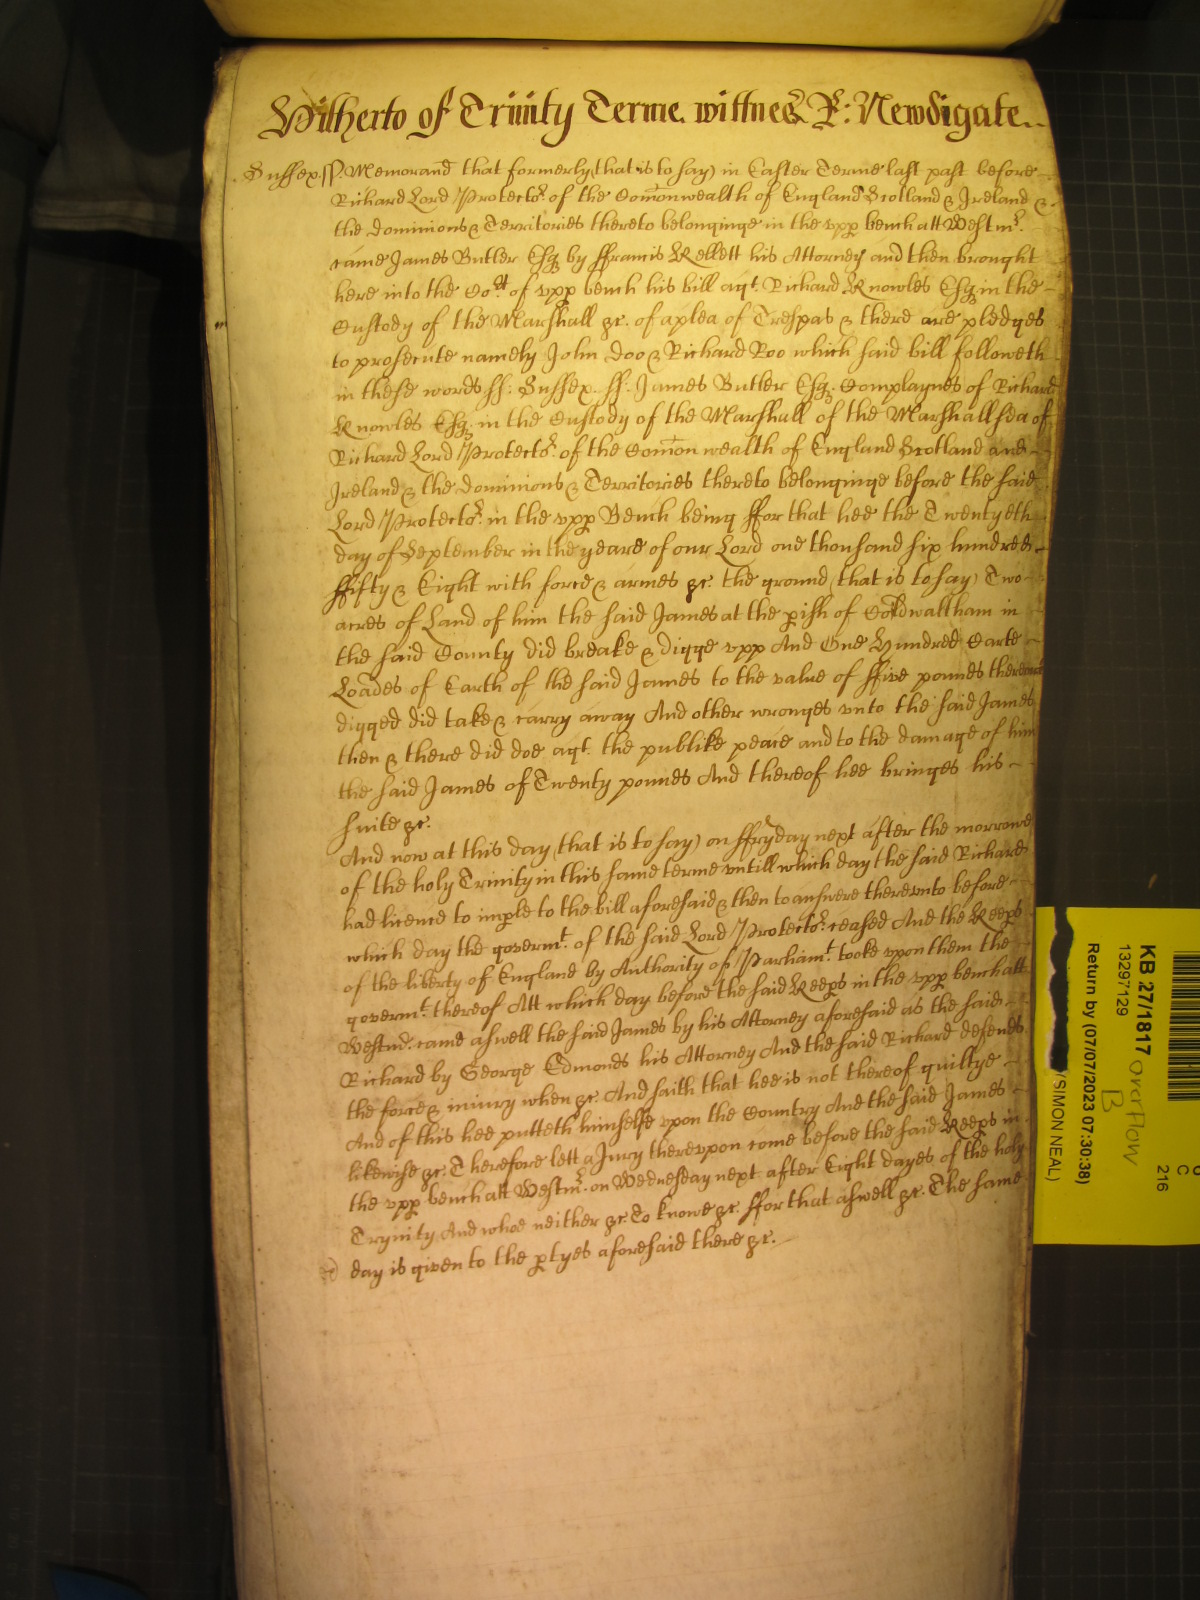 Hitherto of Trinity Terme. wittnes R: Newdigate.
Sussex. ss. Memorand that formerly (that is to say) in Easter Terme last past before
Richard Lord Protector of the Comonwealth of England Scotland & Ireland &
the dominions & Territories thereto belonginge in the upp bench att Westmr.
came James Butler Esq by ffrancis Kellett his Attorney and then brought
here into the Cort of upp bench his bill agt. Richard Knowles Esq in the
Custody of the Marshall &c. of a plea of Trespas & there are pledges
to prosecute namely John Doo & Richard Roo which said bill followeth
in these words ss: Sussex. ss. James Butler Esq. Complaynes of Richard
Knowles Esq. in the Custody of the Marshall of the Marshallsea of
Richard Lord Protector. of the Comon wealth of England Scotland and
Ireland & the dominions & Territories thereto belonginge before the said
Lord Protector. in the upp Bench being ffor that hee the Twentyeth
day of September in the yeare of our Lord one thousand six hundred
ffifty & Eight with force & armes &c. the ground (that is to say) Two
acres of Land of him the said James at the pish of Coldwaltham in
the said County did breake & digge upp And One Hundred Carte
Loades of Earth of the said James to the value of ffive pounds thereout
digged did take & carry away And other wronges unto the said James
then & there did doe agt. the publike peace and to the damage of him
the said James of Twenty pounds And thereof hee bringes his
suite &c.
And now at this day (that is to say) on ffryday next after the morrowe
of the holy Trinity in this same terme untill which day the said Richard
had licence to imple to the bill aforesaid & then to answere thereunto before
which day the governmt. of the said Lord Protector. ceased And the Keeps
of the liberty of England by Authority of Parliamt. tooke upon them the
governmt. thereof Att which day before the said Keeps in the upp bench att
Westmr. came aswell the said James by his Attorney aforesaid as the said
Richard by George Edmonds his Attorney And the said Richard defends
the force & iniury when &c. And saith that hee is not thereof guiltye
And of this hee putteth himselfe upon the Country And the said James
likewise &c. Therefore lett a Jury thereupon come before the said Keeps in
the upp bench att Westmr. on Wednesday next after Eight dayes of the holy
Trynity And whoe neither &c. To knowe &c. ffor that aswell &c. The same
day is given to the ptyes aforesaid there &c.
KB 27/1817 overflow
B
13297129
Return by (07/07/2023 07:30:38)
(SIMON NEAL)
C
216